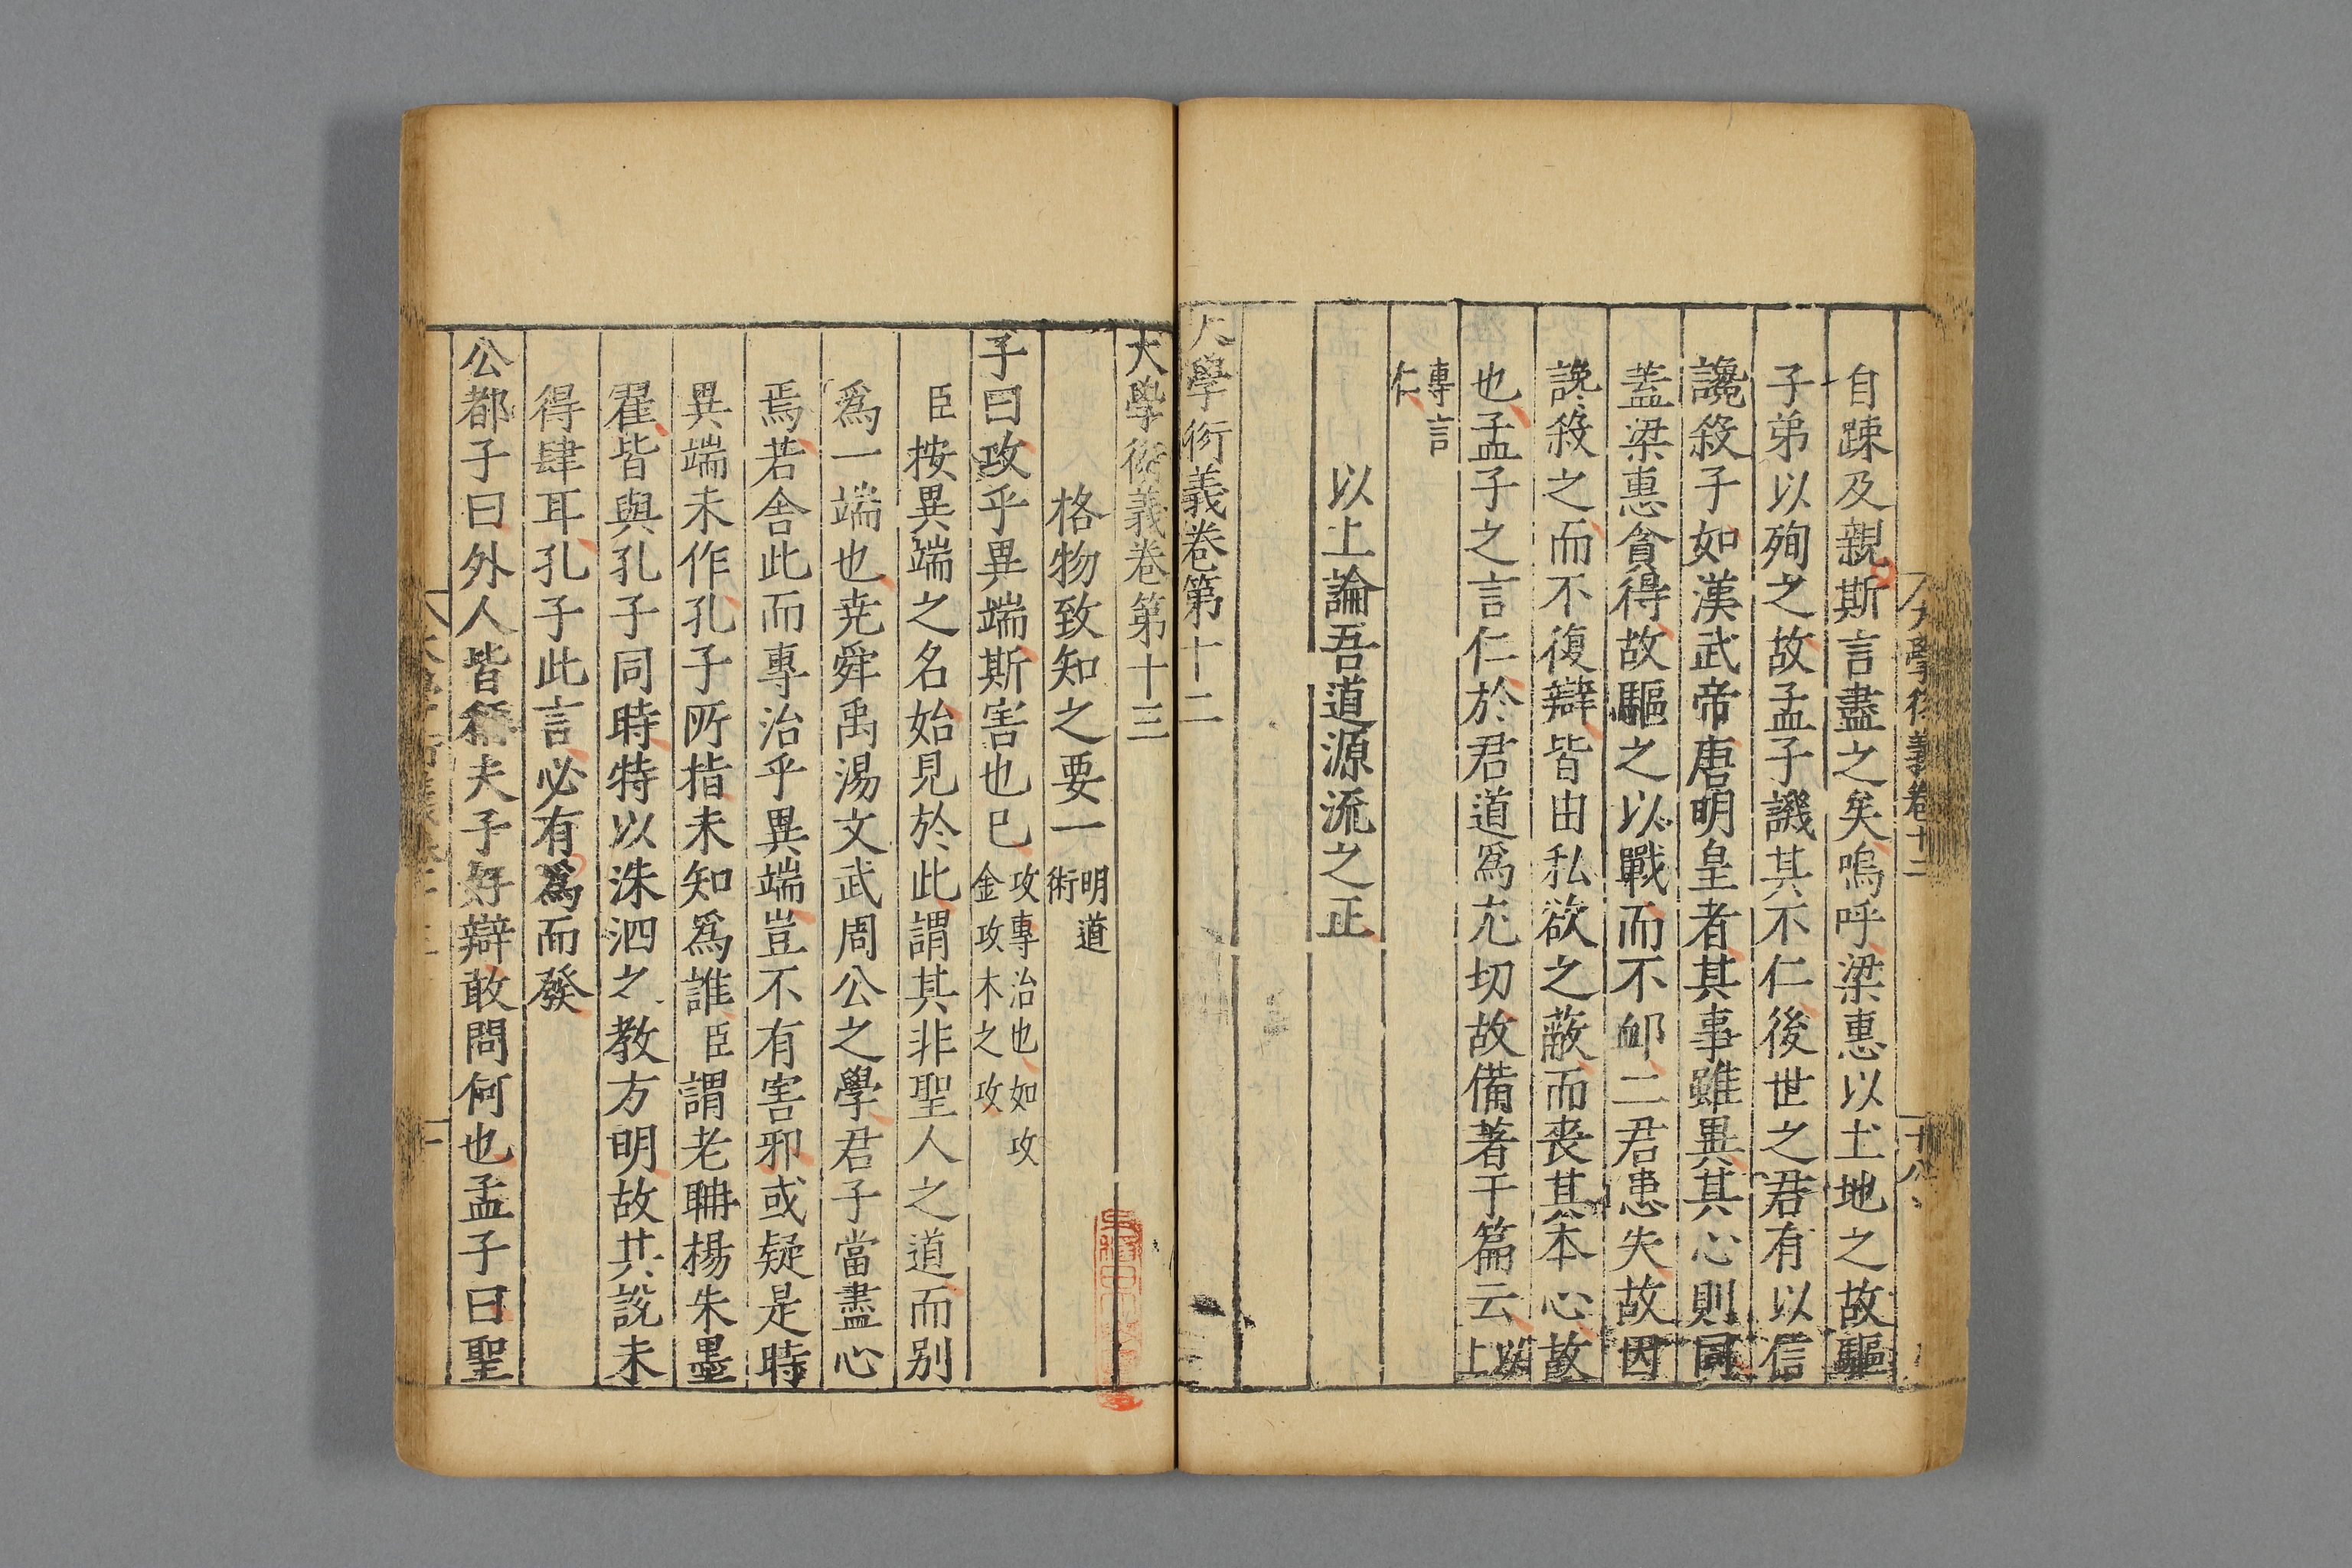 自踈及親斯言盡之矣嗚呼梁惠以土地之故驅
子弟以殉之故孟子譏其不仁後世之君有以信
讒殺子如漢武帝唐明皇者其事雖異其心則同
蓋梁惠貪得故驅之以戰而不卹二君患失故因
讒殺之而不復辯皆由私欲之蔽而丧其本心故
也孟子之言仁於君道爲尤切故備著于篇云以上
專言仁
以上論吾道源流之正
大學衍義卷第十二
大學衍義卷第十三
格物致知之要一明道術
子曰攻乎異端斯害也已攻專治也如攻金攻木之攻
臣按異端之名始見於此謂其非聖人之道而别
爲一端也尭舜禹湯文武周公之學君子當盡心
焉若舍此而專治乎異端豈不有害邪或疑是時
異端未作孔子所指未知爲誰臣謂老聃楊朱墨
翟皆與孔子同時特以洙泗之教方明故其說未
得肆耳孔子此言必有爲而發
公都子曰外人皆稱夫子好辯敢問何也孟子曰聖
大學衍義卷十二
十八